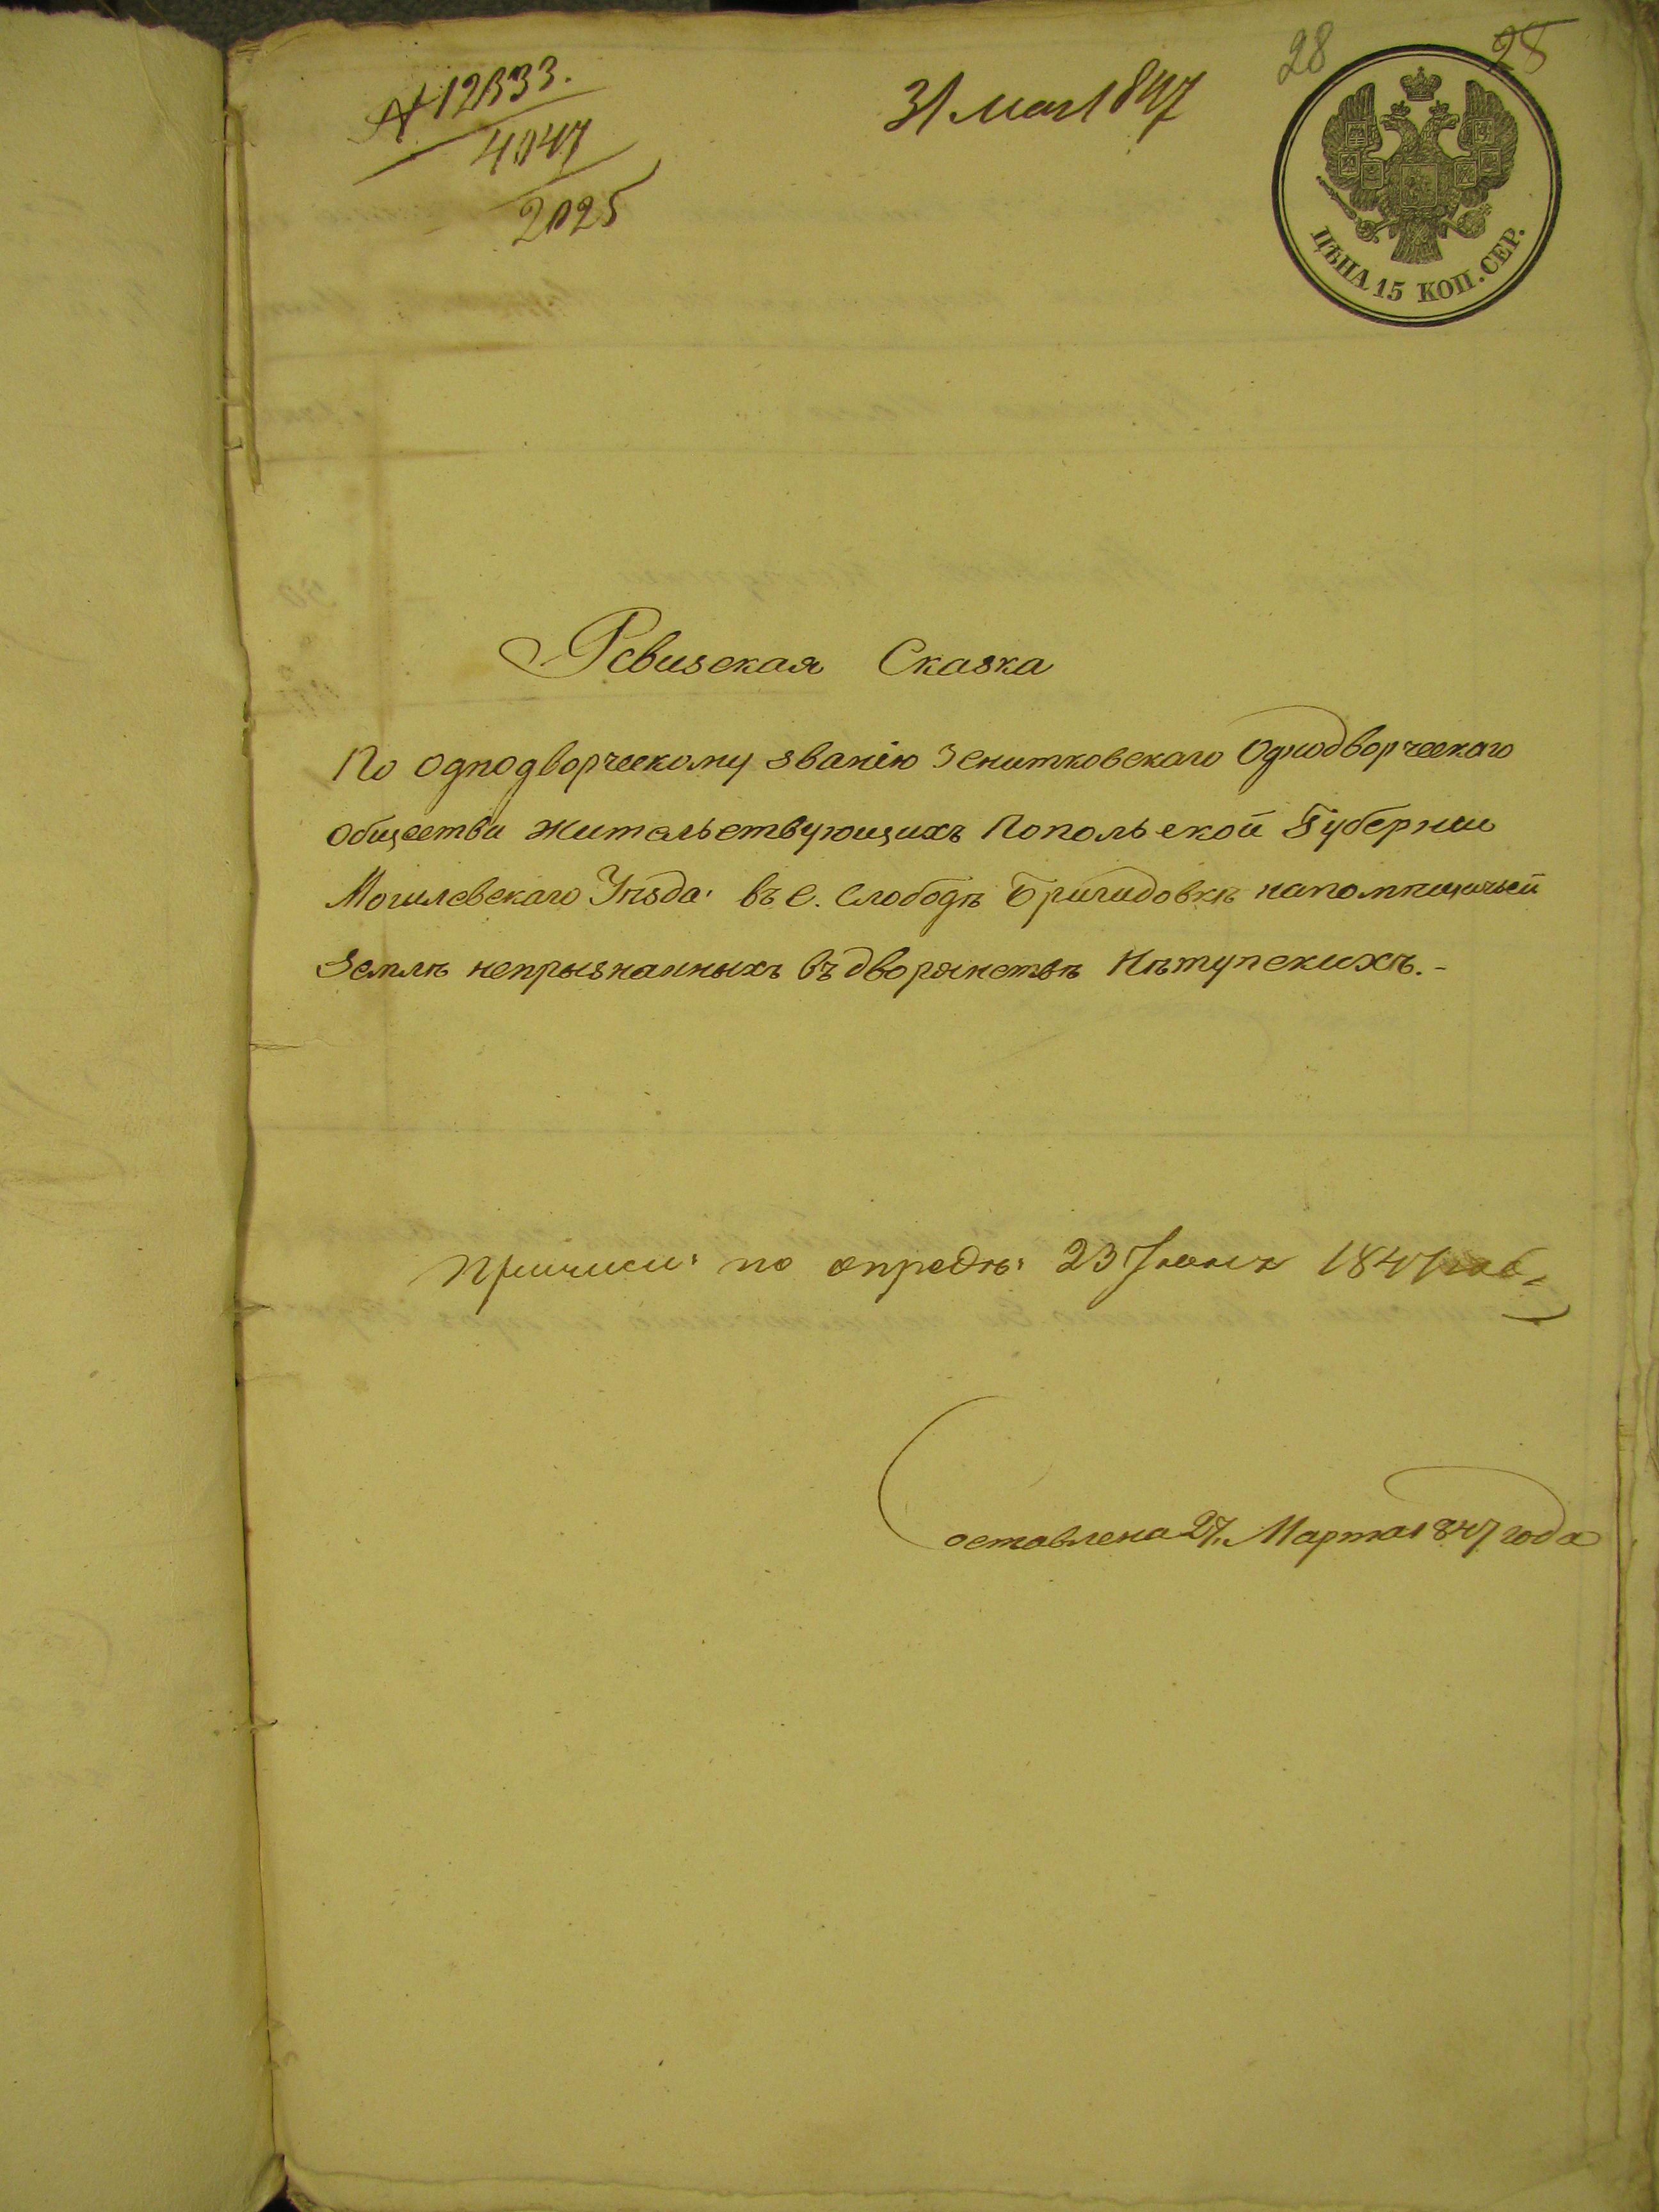 28 28
№ 12833.
4047
2025
31 мая 1847
ЦѢНА 15 КОП. СЕР.
Ревизская Сказка
По Однодворческому званію Зенитковскаго Однодворческаго
общества жительствующихъ Попольской Губерніи
Могилевскаго Уѣзда: въ с. Слободѣ Бригидовкѣ напомѣщичьей
землѣ непрызнанныхъ въ дворянствѣ
Причисл: по опредѣ: 23 Іюня 1847
Составлена 27. Марта 1847 года